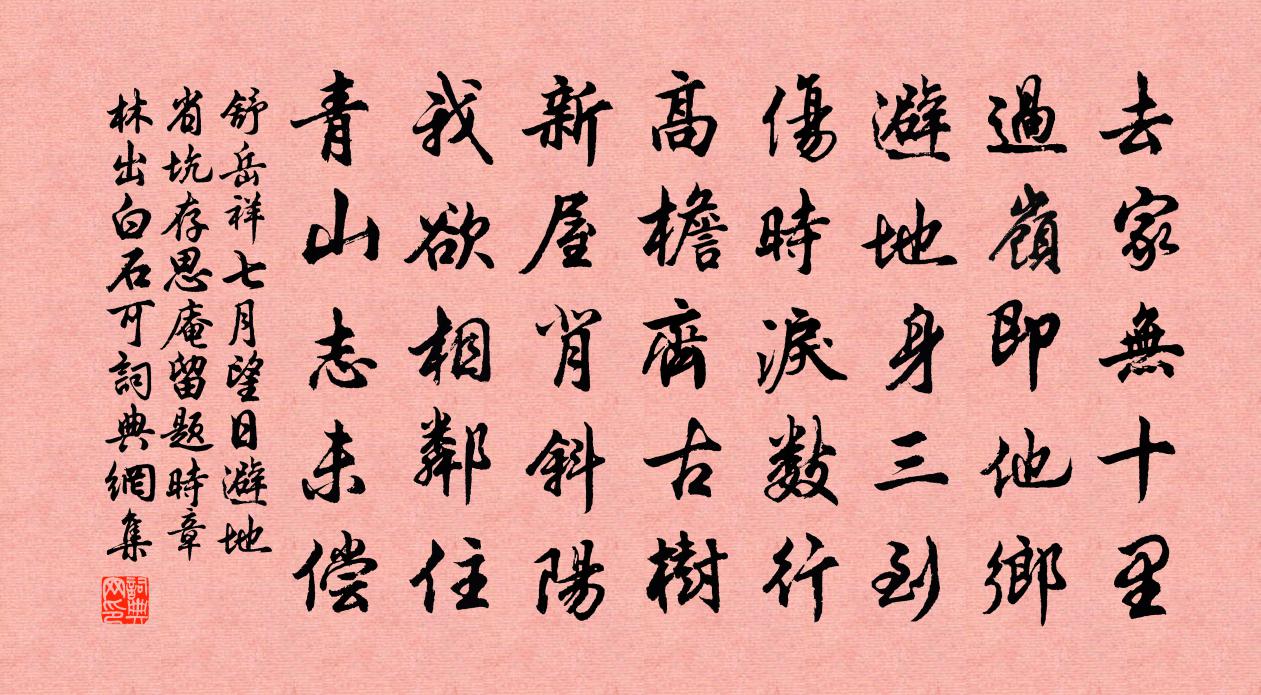 去家無十里
過嶺即他鄉
避地身三到
傷時淚數行
高檐齊古樹
新屋背斜陽
我欲相鄰住
青山志未偿
舒岳祥七月望日避地
省坑存思庵留题時章
林出白石可詞典網集
詞典網印